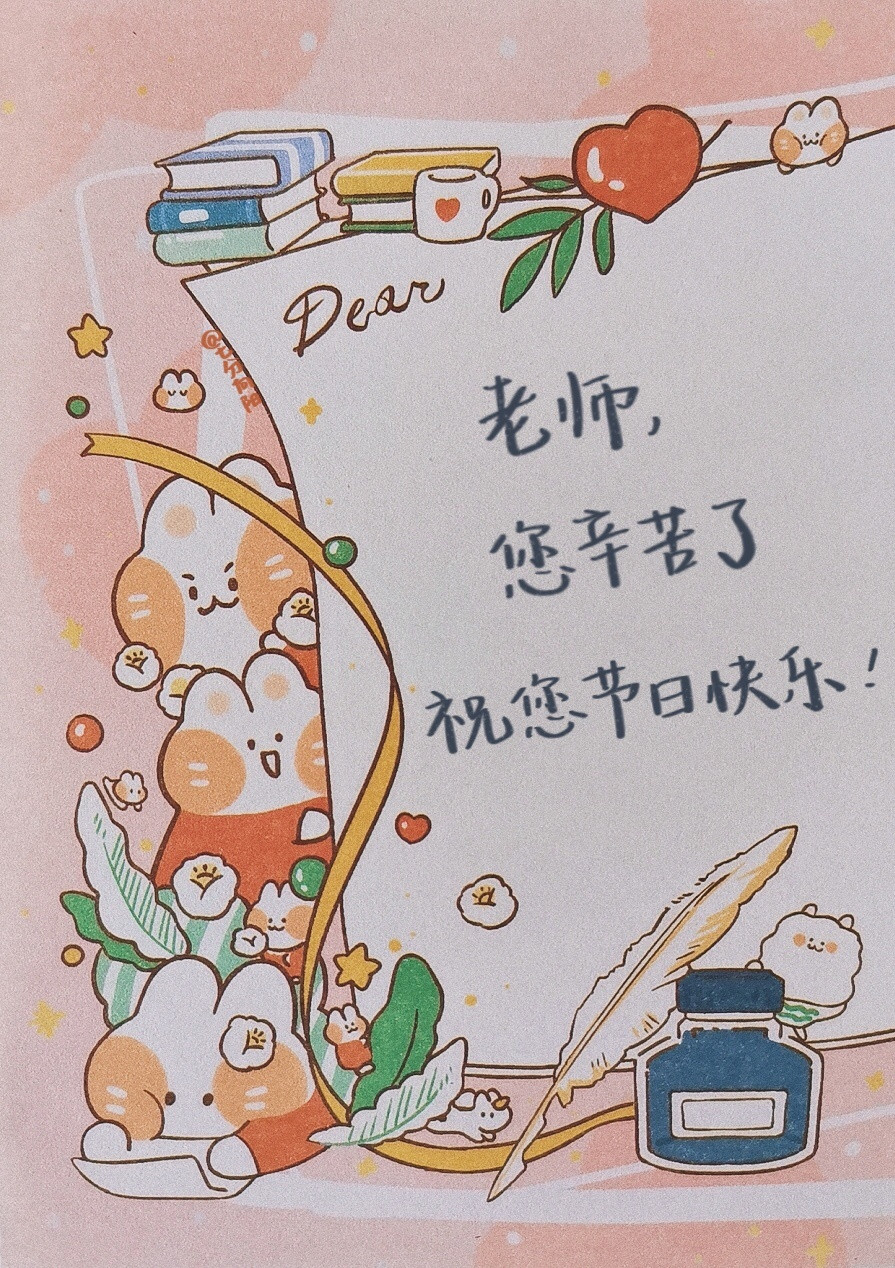 Dear
老师,
您辛苦了
祝您节日快乐!
@七分向阳